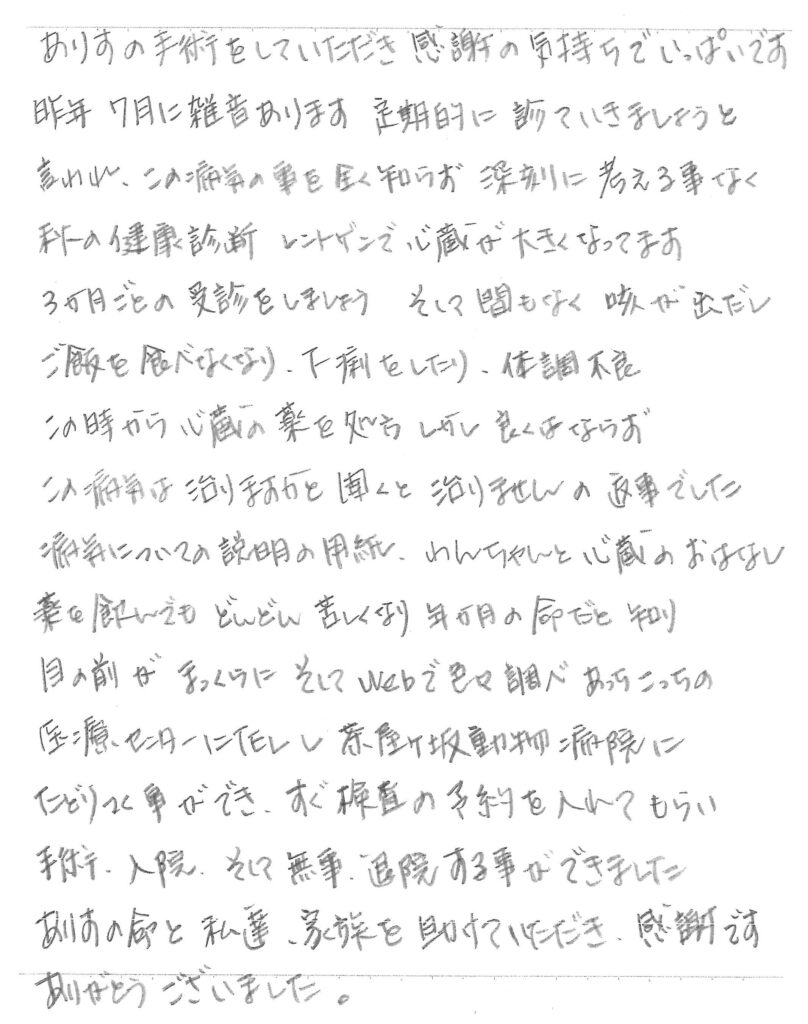 ありすの手術をしていただき 感謝の気持ちでいっぱいです
昨年 7月に雑音あります 定期的に 診ていきましょうと
言われ、この病気の事を全く知らず 深刻に 考える事なく
秋の健康診断 レントゲンで 心臓が 大きくなってます
3か月ごとの 受診をしましょう そして 間もなく 咳が 出だし
ご飯を 食べなくなり、下痢をしたり、体調不良
この時から 心臓の 薬を 処方 しかし 良くはならず
この病気は 治りますかと 聞くと 治りませんの 返事でした
病気についての 説明の用紙、わんちゃんと 心臓の おはなし
薬を 飲んでも どんどん 苦しくなり 年か月の 命だと 知り
目の前が まっくらに そして Webで 色々 調べ あっちこっちの
医療センターにTELし 茶屋ヶ坂動物病院に
たどりつく事ができ、すぐ検査の予約を入れてもらい
手術、入院、そして 無事、退院する事ができました
ありすの命と 私達、家族を 助けていただき、感謝です
ありがとうございました。